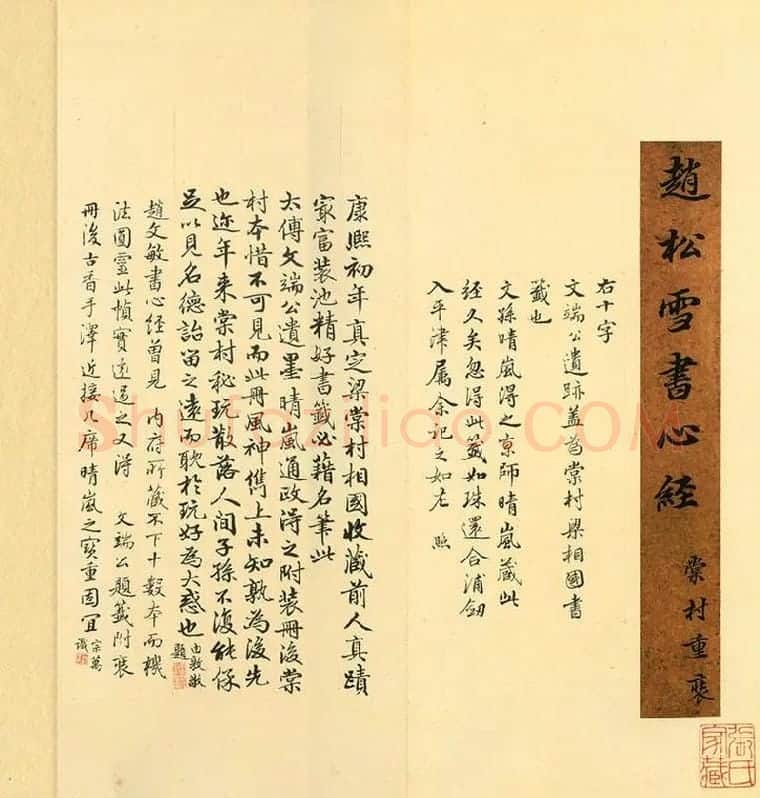 趙松雪書心經
棠村重裝
張氏家藏
右十字
文端公遺跡蓋為棠村梁相國書
籤也
文孫晴嵐得之京師晴嵐藏此
經久矣忽得此籤如珠還合浦劍
入平津屬余記之如左 照
康熙初年真定梁棠村相國收藏前人真蹟
最富裝池精好書籤必藉名筆此
太傅文端公遺墨晴嵐通政得之附裝冊後棠
村本惜不可見而此冊風神儁上未知孰為後先
也迩年来棠村秘玩散落人间子孫不復能保
足以見名德詒留之遠而耽於玩好為大惑也
由敦敬題
趙文敏書心經曾見 內府所藏不下十數本而機
法圓靈此幀實遠過之又得 文端公題籤附裝
冊後古香手澤近接几席晴嵐之寶重固宜
宗萬識
Shufaziliao.COM